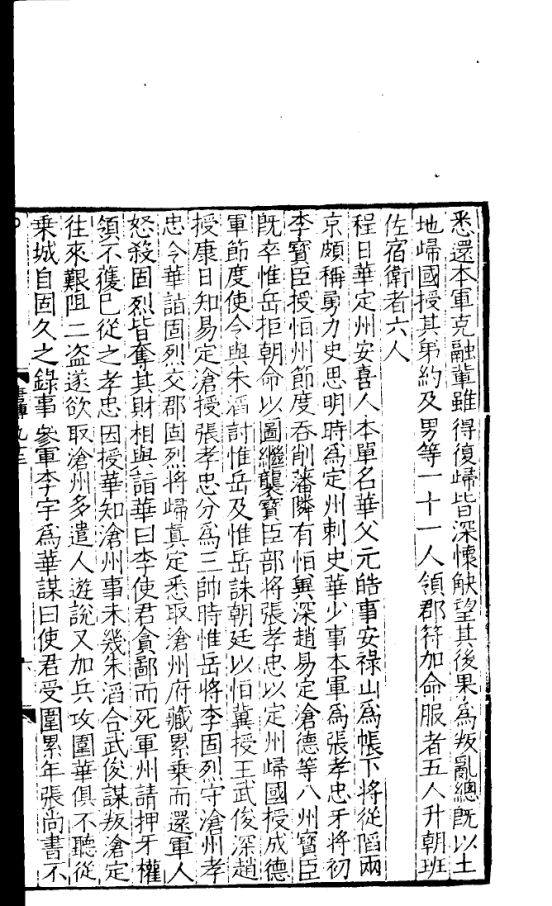 悉還本軍克融軰雖得復歸皆深懷觖望其後果為叛亂緫旣以土
地歸國授其弟約及男等一十一人領郡符加命服者五人升朝班
佐宿衛者六人
程日華定州安喜人本單名華父元皓事安祿山為帳下將從陷兩
京頗稱勇力史思明時為定州刺史華少事本軍為張孝忠牙將初
李寳臣授恒州節度吞削藩隣有恒冀深趙易定滄德等八州寳臣
旣卒惟岳拒朝命以圖繼襲寳臣部將張孝忠以定州歸國授成德
軍節度使令與朱滔討惟岳及惟岳誅朝廷以恒冀授王武俊深趙
授康日知易定滄授張孝忠分為三帥時惟岳將李固烈守滄州孝
忠令華詣固烈交郡固烈將歸真定悉取滄州府藏累乗而還軍人
怒殺固烈皆奪其財相與詣華曰李使君貪鄙而死軍州請押牙權
領不獲已從之孝忠因授華知滄州事未幾朱滔合武俊謀叛滄定
往來艱阻二盗遂欲取滄州多遣人遊說又加兵攻圍華俱不聽從
乗城自固久之錄事參軍李宇為華謀曰使君受圍累年張尚書不